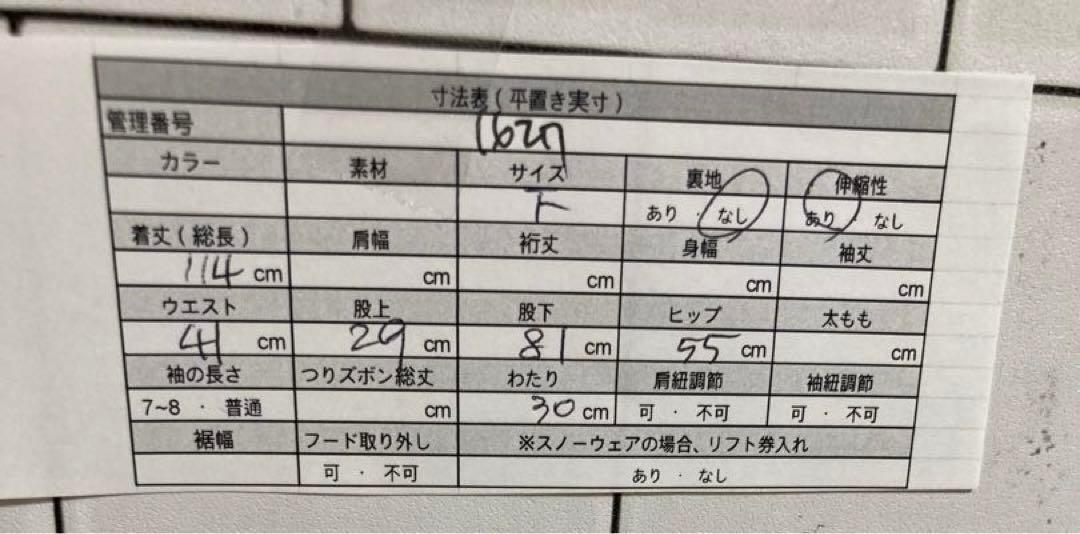 寸法表(平置き実寸)
管理番号
カラー 素材 サイズ 裏地 伸縮性
あり ・ なし あり ・ なし
着丈(総長) 肩幅 裄丈 身幅 袖丈
114 cm cm cm cm cm
ウエスト 股上 股下 ヒップ 太もも
41 cm 29 cm 81 cm 55 cm cm
袖の長さ つりズボン総丈 わたり 肩紐調節 袖紐調節
7~8 ・ 普通 cm 30 cm 可 ・ 不可 可 ・ 不可
裾幅 フード取り外し ※スノーウェアの場合、リフト券入れ
可 ・ 不可 あり ・ なし